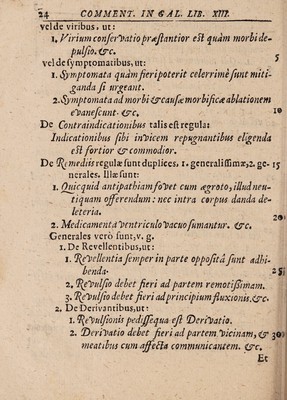 24 COMMENT. IN GAL. LIB. XIII.
vel de viribus, ut:
1. Virium conservatio præstantior est quàm morbi de-
pulsio. &c.
vel de symptomatibus, ut: 5
1. Symptomata quàm fieri poterit celerrimè sunt miti-
ganda si urgeant.
2. Symptomata ad morbi & causæ morbificæ ablationem
evanescunt. &c. 10
De Contraindicationibus talis est regula:
Indicationibus sibi invicem repugnantibus eligenda
est fortior & commodior.
De Remediis regulæ sunt duplices, 1. generalissimæ, 2. ge- 15
nerales. Illæ sunt:
1. Quicquid antipathiam fovet cum ægroto, illud neu-
tiquam offerendum: nec intra corpus danda de-
leteria. 20
2. Medicamenta ventriculo vacuo sumantur. &c.
Generales verò sunt, v. g.
1. De Revellentibus, ut:
1. Revellentia semper in parte opposita sunt adhi-
benda. 25
2. Revulsio debet fieri ad partem remotissimam.
3. Revulsio debet fieri ad principium fluxionis. &c.
2. De Derivantibus, ut:
1. Revulsionis pedissequa est Derivatio.
2. Derivatio debet fieri ad partem vicinam, & 30
meatibus cum affecta communicantem. &c.
Et